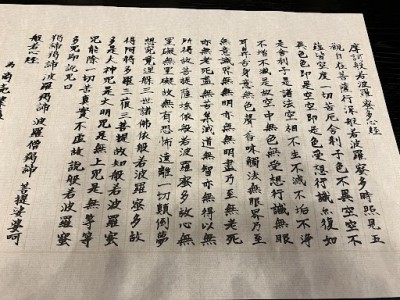 摩訶般若波羅蜜多心経
觀自在菩薩行深般若波羅蜜多時照見五
蘊皆空度一切苦厄舎利子色不異空空不
異色色即是空空即是色受想行識亦復如
是舎利子是諸法空相不生不滅不垢不淨
不増不減是故空中無色無受想行識無眼
耳鼻舌身意無色聲香味觸法無眼界乃至
無意識界無無明亦無無明盡乃至無老死
亦無老死盡無苦集滅道無智亦無得以無
所得故菩提薩埵依般若波羅蜜多故心無
罣礙無罣礙故無有恐怖遠離一切顛倒夢
想究竟涅槃三世諸佛依般若波羅蜜多故
得阿耨多羅三藐三菩提故知般若波羅蜜
多是大神咒是大明咒是無上咒是無等等
咒能除一切苦真實不虚故説般若波羅蜜
多咒即説咒曰
揭諦揭諦 波羅揭諦 波羅僧揭諦 菩提娑婆呵
般若心経
為